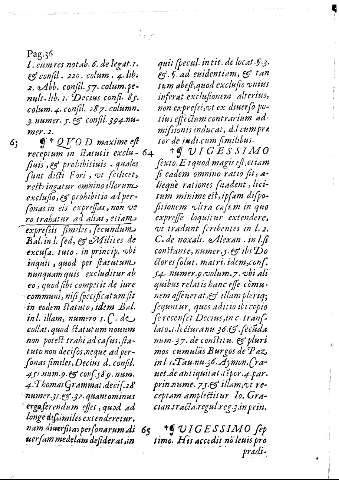 Pag.36
I. eum res notab. 6. de legat. 1.
& consil. 220. colum. 4. lib.
2. Abb. consil. 57. column. pe-
nult. lib. 1. Decius consil. 85.
colum. 4. consil. 287. column.
9. numer. 5. & consil. 394. nu-
mer. 2.
63 ¶ QVOD maxime est
receptum in statutis exclu-
siuis, & prohibitiuis, quales
sunt dicti Fori, vt scilicet,
restringatur omnino illorum
exclusio, & prohibitio ad per-
sonas in eis expressas, non ve
ro trahatur ad alias, etiam
expressis similes, secundum
Bal. in l. sed, & Milites de
excusa. tuto. in princip. vbi
inquit, quod per statutum
nunquam quis excluditur ab
eo, quod sibi competit de iure
communi, nisi specificatum sit
in eodem statuto, idem Bal.
in l. illam, numero 5. C. de
collat. quod statutum nouum
non potest trahi ad casus, sta-
tuto non decisos, neque ad per-
sonas similes, Decius d. consil.
45. num. 9. & consil. 389. num.
4. Thomas Grammat. decis. 28
numer. 31. & 37. quanto minus
ergo ferendum esset, quod ad
longe dissimiles extenderetur,
nam diuersitas personarum di
uersam medelam desiderat, in
quit specul. in tit. de locat. §. 3.
& §. ad euidentiam, & tan
tum abest, quod exclusio vnius
inferat exclusionem alterius,
non expressi, vt ex diuerso po-
tius effectum contrarium ad-
missionis inducat, d. l. cum præ
tor de iudi. cum similibus.
64 † ¶ VIGESSIMO
sexto. Et quod magis est, etiam
si eadem omnino ratio sit, a-
liæquè rationes suadent, lici-
tum minime est, ipsam dispo-
sitionem vltra casum in quo
expresse loquitur extendere,
vt tradunt scribentes in l. 2.
C. de noxali. Alexan. in l. si
constante, numer. 5. & ibi Do
ctores solut. matri. idem, cons.
54. numer. 9. volum. 7. vbi ali
quibus relatis hanc esse commu-
nem asseuerat, & illam pleriq;
sequuntur, quos aditio ibi copio
se recenset Decius, in c. trans-
lato, 1. lectura nu. 36. & secunda
num. 37. de constitu. & pluri
mos cumulās Burgos de Paz,
in l. 1. Tau. nu. 36. Azmon. Gra-
uet. de antiquitat. tēpor. 4. par.
prin. nume. 75. & illam, vt re-
ceptam amplectitur Io. Gra-
tian. tracta. regul. reg. 3. in prin.
65 † ¶ VIGESSIMO sep
timo. His accedit nō leuis pro
pradi-